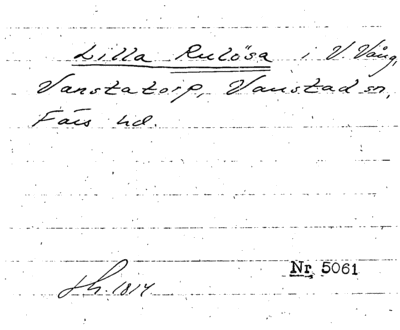 Lilla Rulösa i V. Vång,
Vanstatorp, Vanstad sn,
Färs hd.
Nr 5061
Sk. 1814